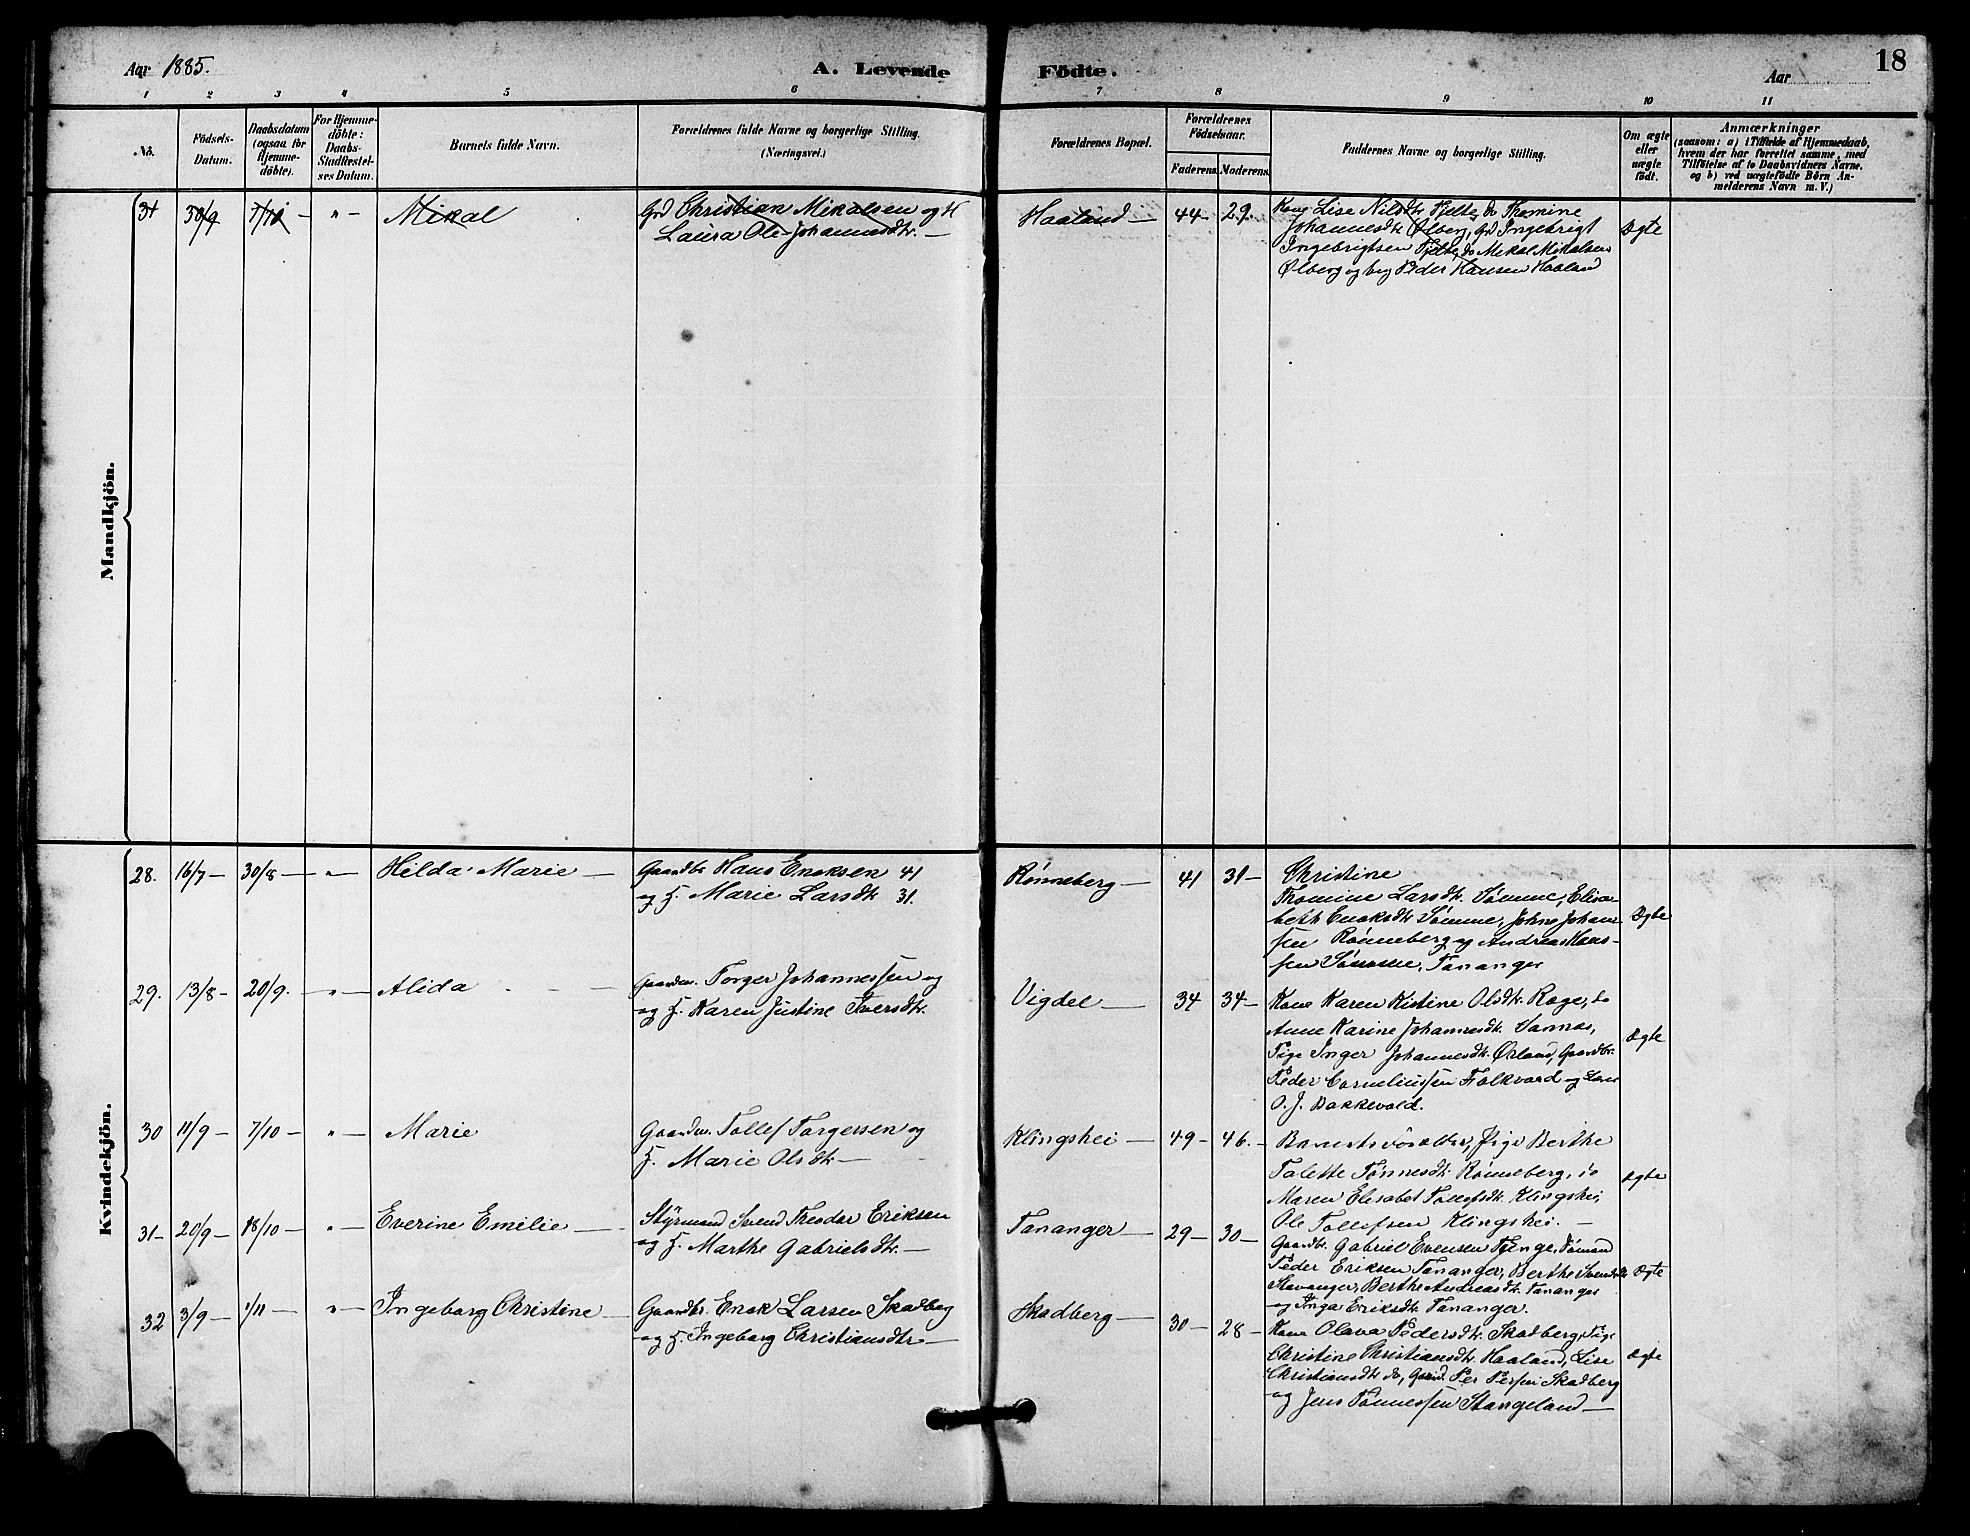 Aar 1885.
A. Levende Fødte.
Aar
18
1 2 3 4 5 6 7 8 9 10 11
No.
Fødsels-Datum.
Daabsdatum (ogsaa for Hjemmedöbte).
For Hjemmedöbte: Daabs-Stadfæstelses Datum.
Barnets fulde Navn.
Forældrenes fulde Navne og borgerlige Stilling. (Næringsvei.)
Forældrenes Bopæl.
Forældrenes Födselsaar.
Faderens. Moderens.
Faddernes Navne og borgerlige Stilling.
Om ægte eller uægte födt.
Anmærkninger
(saasom: a) i Tilfælde af Hjemmedaab,
hvem der har forrettet samme, med
Tilföielse af to Daabsvidners Navne.
og b) ved uægtefödte Börn An-
melderens Navn m. V.)
Mandkjön.
31 30/9 7/11 - " - Mikal
Grd Christian Mikalsen og H
Laura Ole Johannesdtr. -
Haaland - 44 - 29.
Kone Lise Nilsdtr. Tjelte, do Thomine
Johannesdtr Ølberg, grd Ingebrigt
Ingebrigtsen Tjelte, do Mekal Mikalsen
Ølberg og bag Peder Hansen Haaland
Ægte
Kvindekjön.
28. 16/7 - 30/8 - " - Hilda Marie -
Gaardbr Hans Enoksen 41
og H. Marie Larsdtr 31.
Rønneberg - 41 31 -
Christine
Thomine Larsdtr. Sømme, Elisa-
beth Enoksdtr Sømme, Johne Johans-
sen Rønneberg og Andreas Hans-
sen Sømme, Tananger
Ægte
29. 13/8 - 20/9. - " - Alida -
Gaardm. Torger Johannessen og
og H. Karen Justine Iversdtr.
Vigdel - 34 34 -
Kone Karen Kistine Olsdtr. Røge, do
Anne Karine Johannesdtr. Sannes,
Pige Inger Johannesdtr. Ørland, Gaardbr.
Peder Corneliussen Folkvord og Lærer
O. J. Bakkevold.
Ægte
30 11/9 - 7/10 - " - Marie
Gaardm. Tollef Torgersen og
H. Marie Olsdtr -
Klingshei - 49 - 46. -
Barnets Forældre, Pige Berthe
Talette Tønnesdtr. Rønneberg, do
Maren Elisabet Tollefsdtr. Klingshei,
Ole Tollefsen Klingshei. -
Ægte
31 - 20/9 - 18/10 - " - Everine Emilie -
Styrmand Svend Theodor Eriksen
og H. Marthe Gabrielsdtr. -
Tananger - 29 - 30 -
Gaardbr. Gabriel Evensen Tjenge, Sømand
Peder Eriksen Tananger, Berthe Svendsdtr
Stavanger, Berthe Andreasdtr. Tananger
og Inga Eriksdtr. Tananger.
Ægte
32 3/9 - 1/11 - " - Ingeborg Christine -
Gaardbr. Enok Larsen Skadberg
og H. Ingeborg Christiansdtr -
Skadberg - 30 - 28 -
Kone Olava Pedersdtr. Skadberg, Pige
Christine Christiansdtr. Haaland, Lise
Christiansdtr do, Gaard. Per Persen Skadberg
og Jens Tønnessen Stangeland -
Ægte